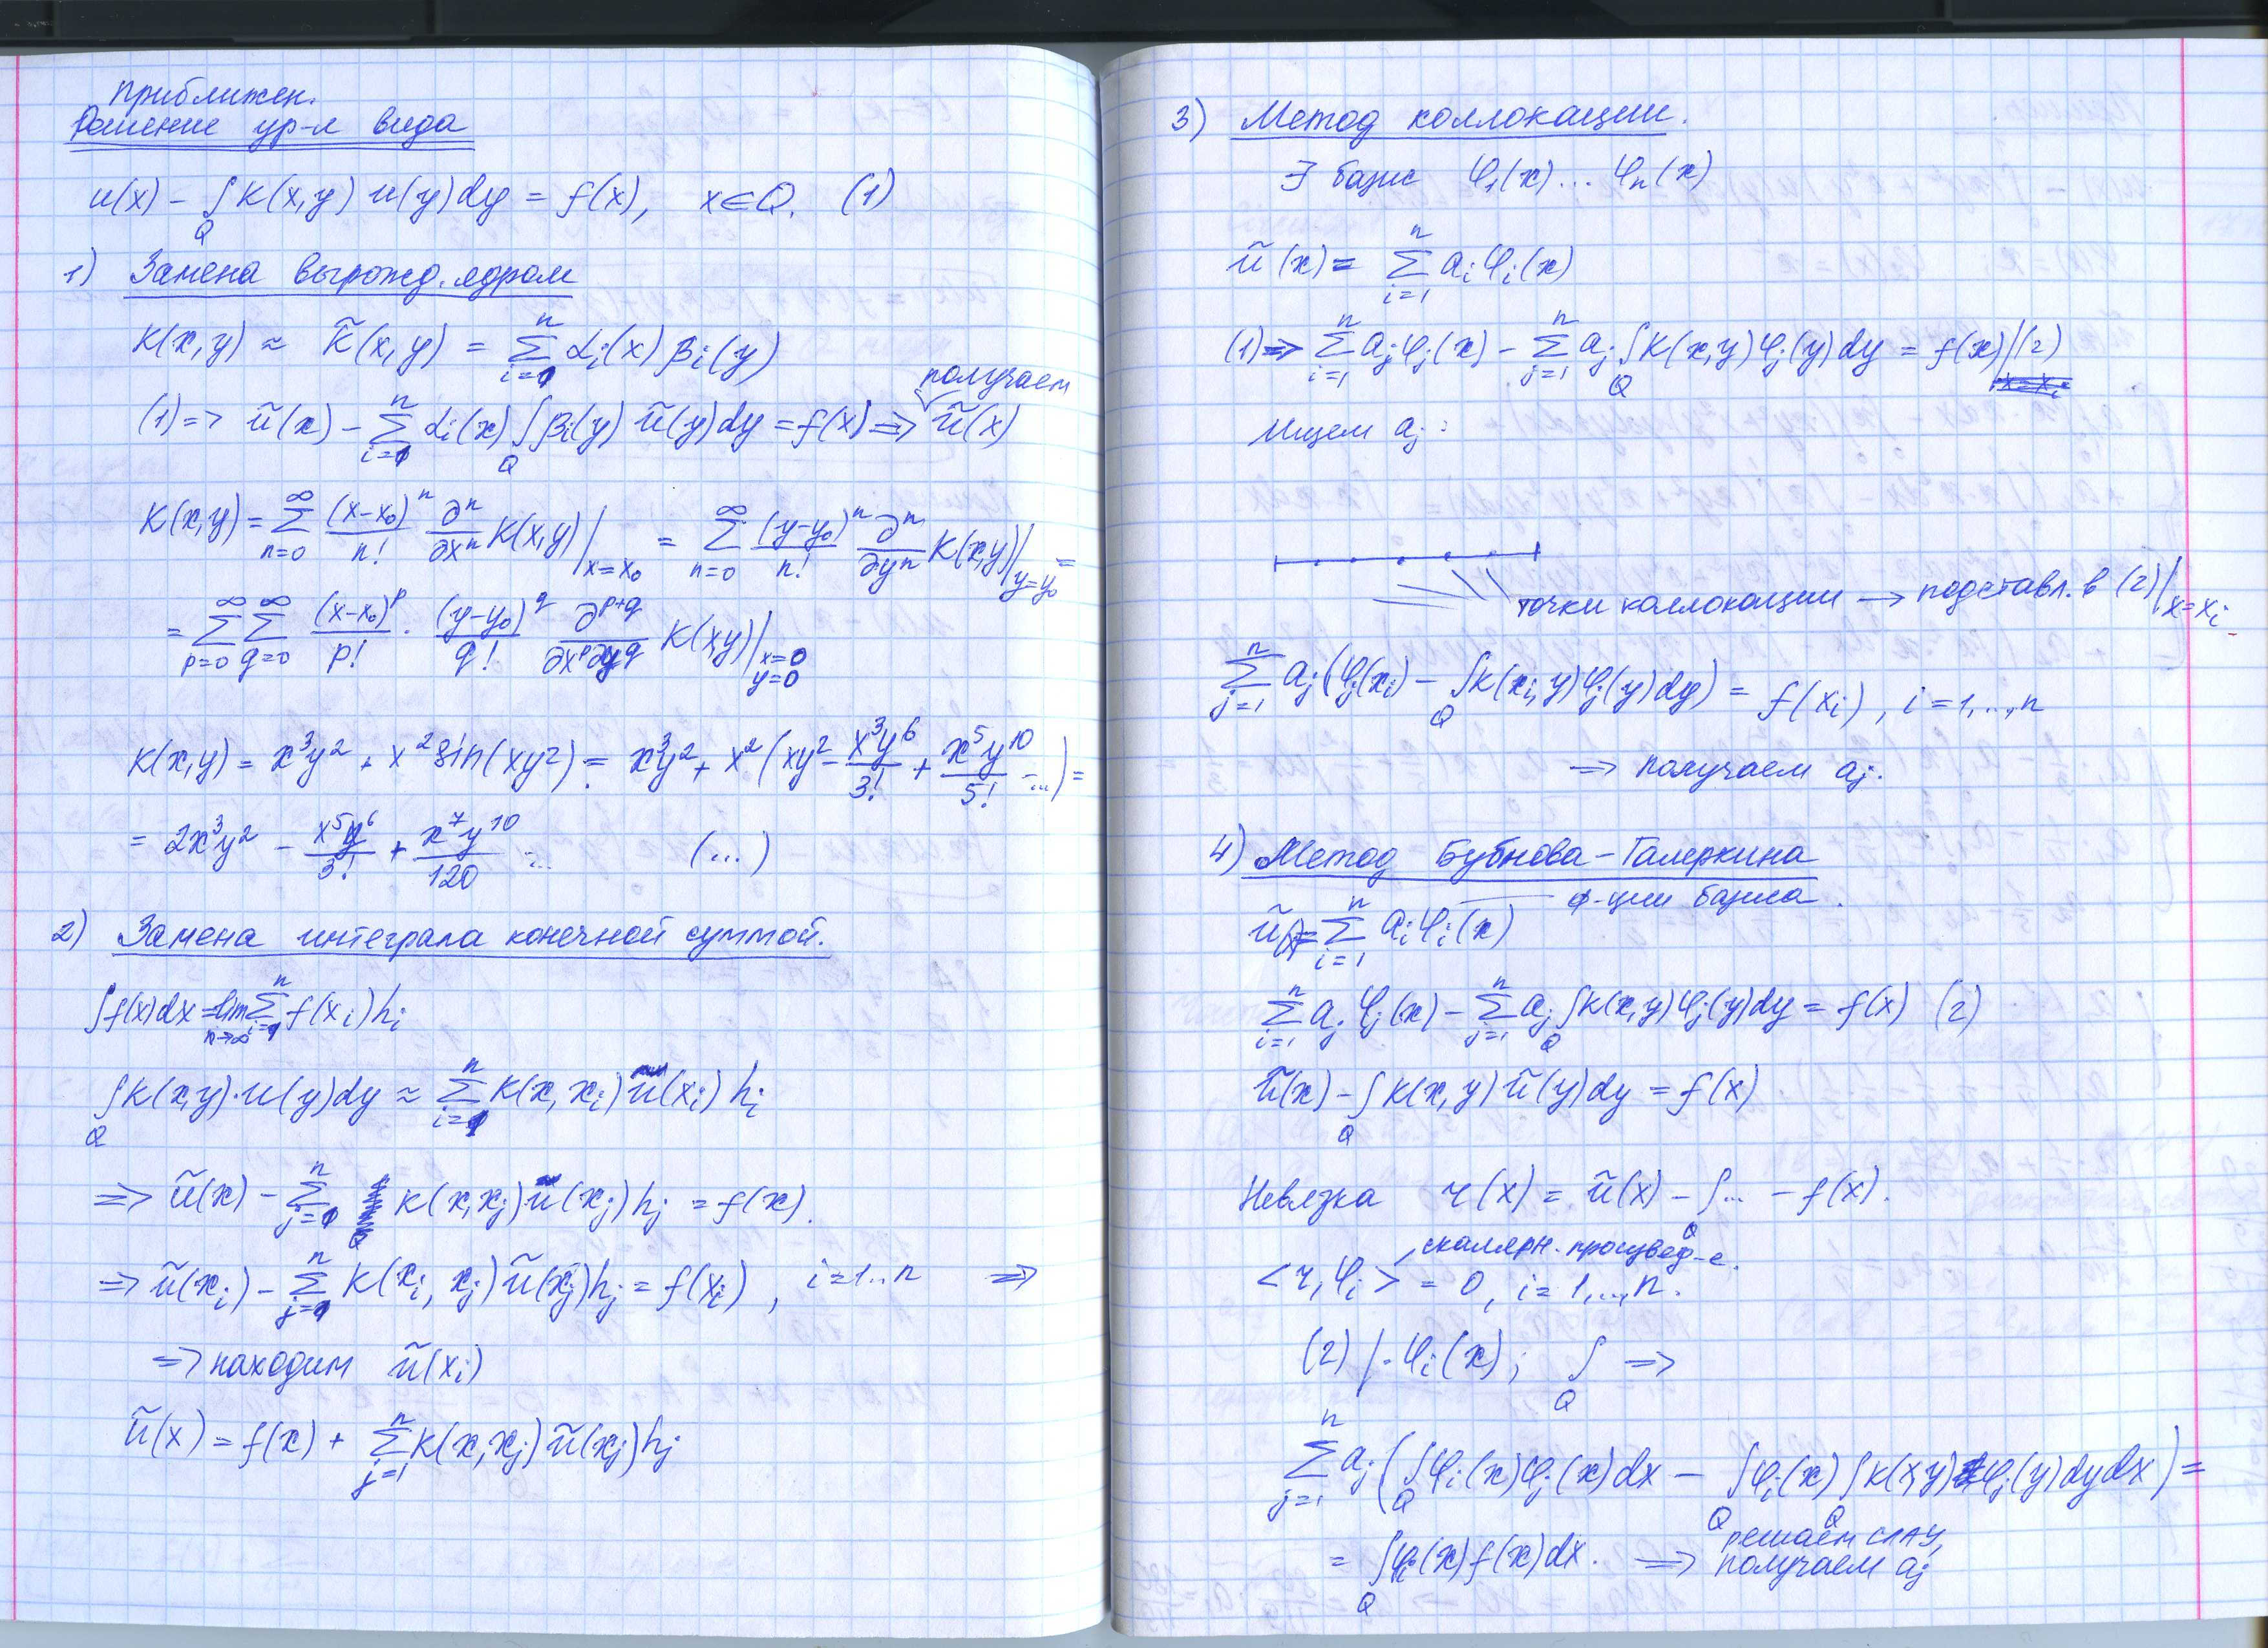 Приближен.
Решение ур-я вида
u(x) − ∫_Q K(x,y) u(y)dy = f(x), x∈Q. (1)
1) Замена вырожд. ядром
K(x,y) ≈ K̃(x,y) = Σ_{i=1}^n α_i(x) β_i(y)
получаем
(1) => ũ(x) − Σ_{i=1}^n α_i(x) ∫_Q β_i(y) ũ(y)dy = f(x) => ũ(x)
K(x,y) = Σ_{n=0}^∞ (x−x₀)^n/n! ∂^n/∂x^n K(x,y)|_{x=x₀} = Σ_{n=0}^∞ (y−y₀)^n/n! ∂^n/∂y^n K(x,y)|_{y=y₀} =
= Σ_{p=0}^∞ Σ_{q=0}^∞ (x−x₀)^p/p! · (y−y₀)^q/q! ∂^{p+q}/∂x^p∂y^q K(xy)|_{x=0 y=0}
K(x,y) = x³y² + x² sin(xy²) = x³y² + x²(xy² − x³y⁶/3! + x⁵y¹⁰/5! − ...) =
= 2x³y² − x⁵y⁶/3! + x⁷y¹⁰/120 − ... (...)
2) Замена интеграла конечной суммой.
∫f(x)dx = lim_{n→∞} Σ_{i=1}^n f(x_i)h_i
∫_Q K(x,y)·u(y)dy ≈ Σ_{i=1}^n K(x,x_i) u(x_i) h_i
=> ũ(x) − Σ_{j=1}^n K(x,x_j) u(x_j) h_j = f(x).
=> ũ(x_i) − Σ_{j=1}^n K(x_i, x_j) ũ(x_j) h_j = f(x_i), i=1..n =>
=> находим ũ(x_i)
ũ(x) = f(x) + Σ_{j=1}^n K(x,x_j) ũ(x_j) h_j
3) Метод коллокации.
∃ базис φ₁(x)...φ_n(x)
ũ(x) = Σ_{i=1}^n a_i φ_i(x)
(1) => Σ_{i=1}^n a_j φ_j(x) − Σ_{j=1}^n a_j ∫_Q K(x,y) φ_j(y)dy = f(x) | (2)
Ищем a_j:
точки коллокации → подставл. в (2)|_{x=x_i}
Σ_{j=1}^n a_j (φ_j(x_i) − ∫_Q K(x_i,y) φ_j(y)dy) = f(x_i), i=1,..,n
=> получаем a_j.
4) Метод Бубнова-Галеркина
ф-ции базиса.
ũ(x) = Σ_{i=1}^n a_i φ_i(x)
Σ_{i=1}^n a_j φ_j(x) − Σ_{j=1}^n a_j ∫_Q K(x,y) φ_j(y)dy = f(x) (2)
ũ(x) − ∫_Q K(x,y) ũ(y)dy = f(x)
Невязка r(x) = ũ(x) − ∫_Q ... − f(x).
скалярн. произвед-е.
<r,φ_i> = 0, i=1,..,n.
(2) | ·φ_i(x); ∫_Q =>
Σ_{j=1}^n a_j (∫_Q φ_i(x)φ_j(x)dx − ∫_Q φ_i(x) ∫_Q K(x,y) φ_j(y)dydx) =
= ∫_Q φ_i(x) f(x)dx. => решаем СЛАУ,
получаем a_j